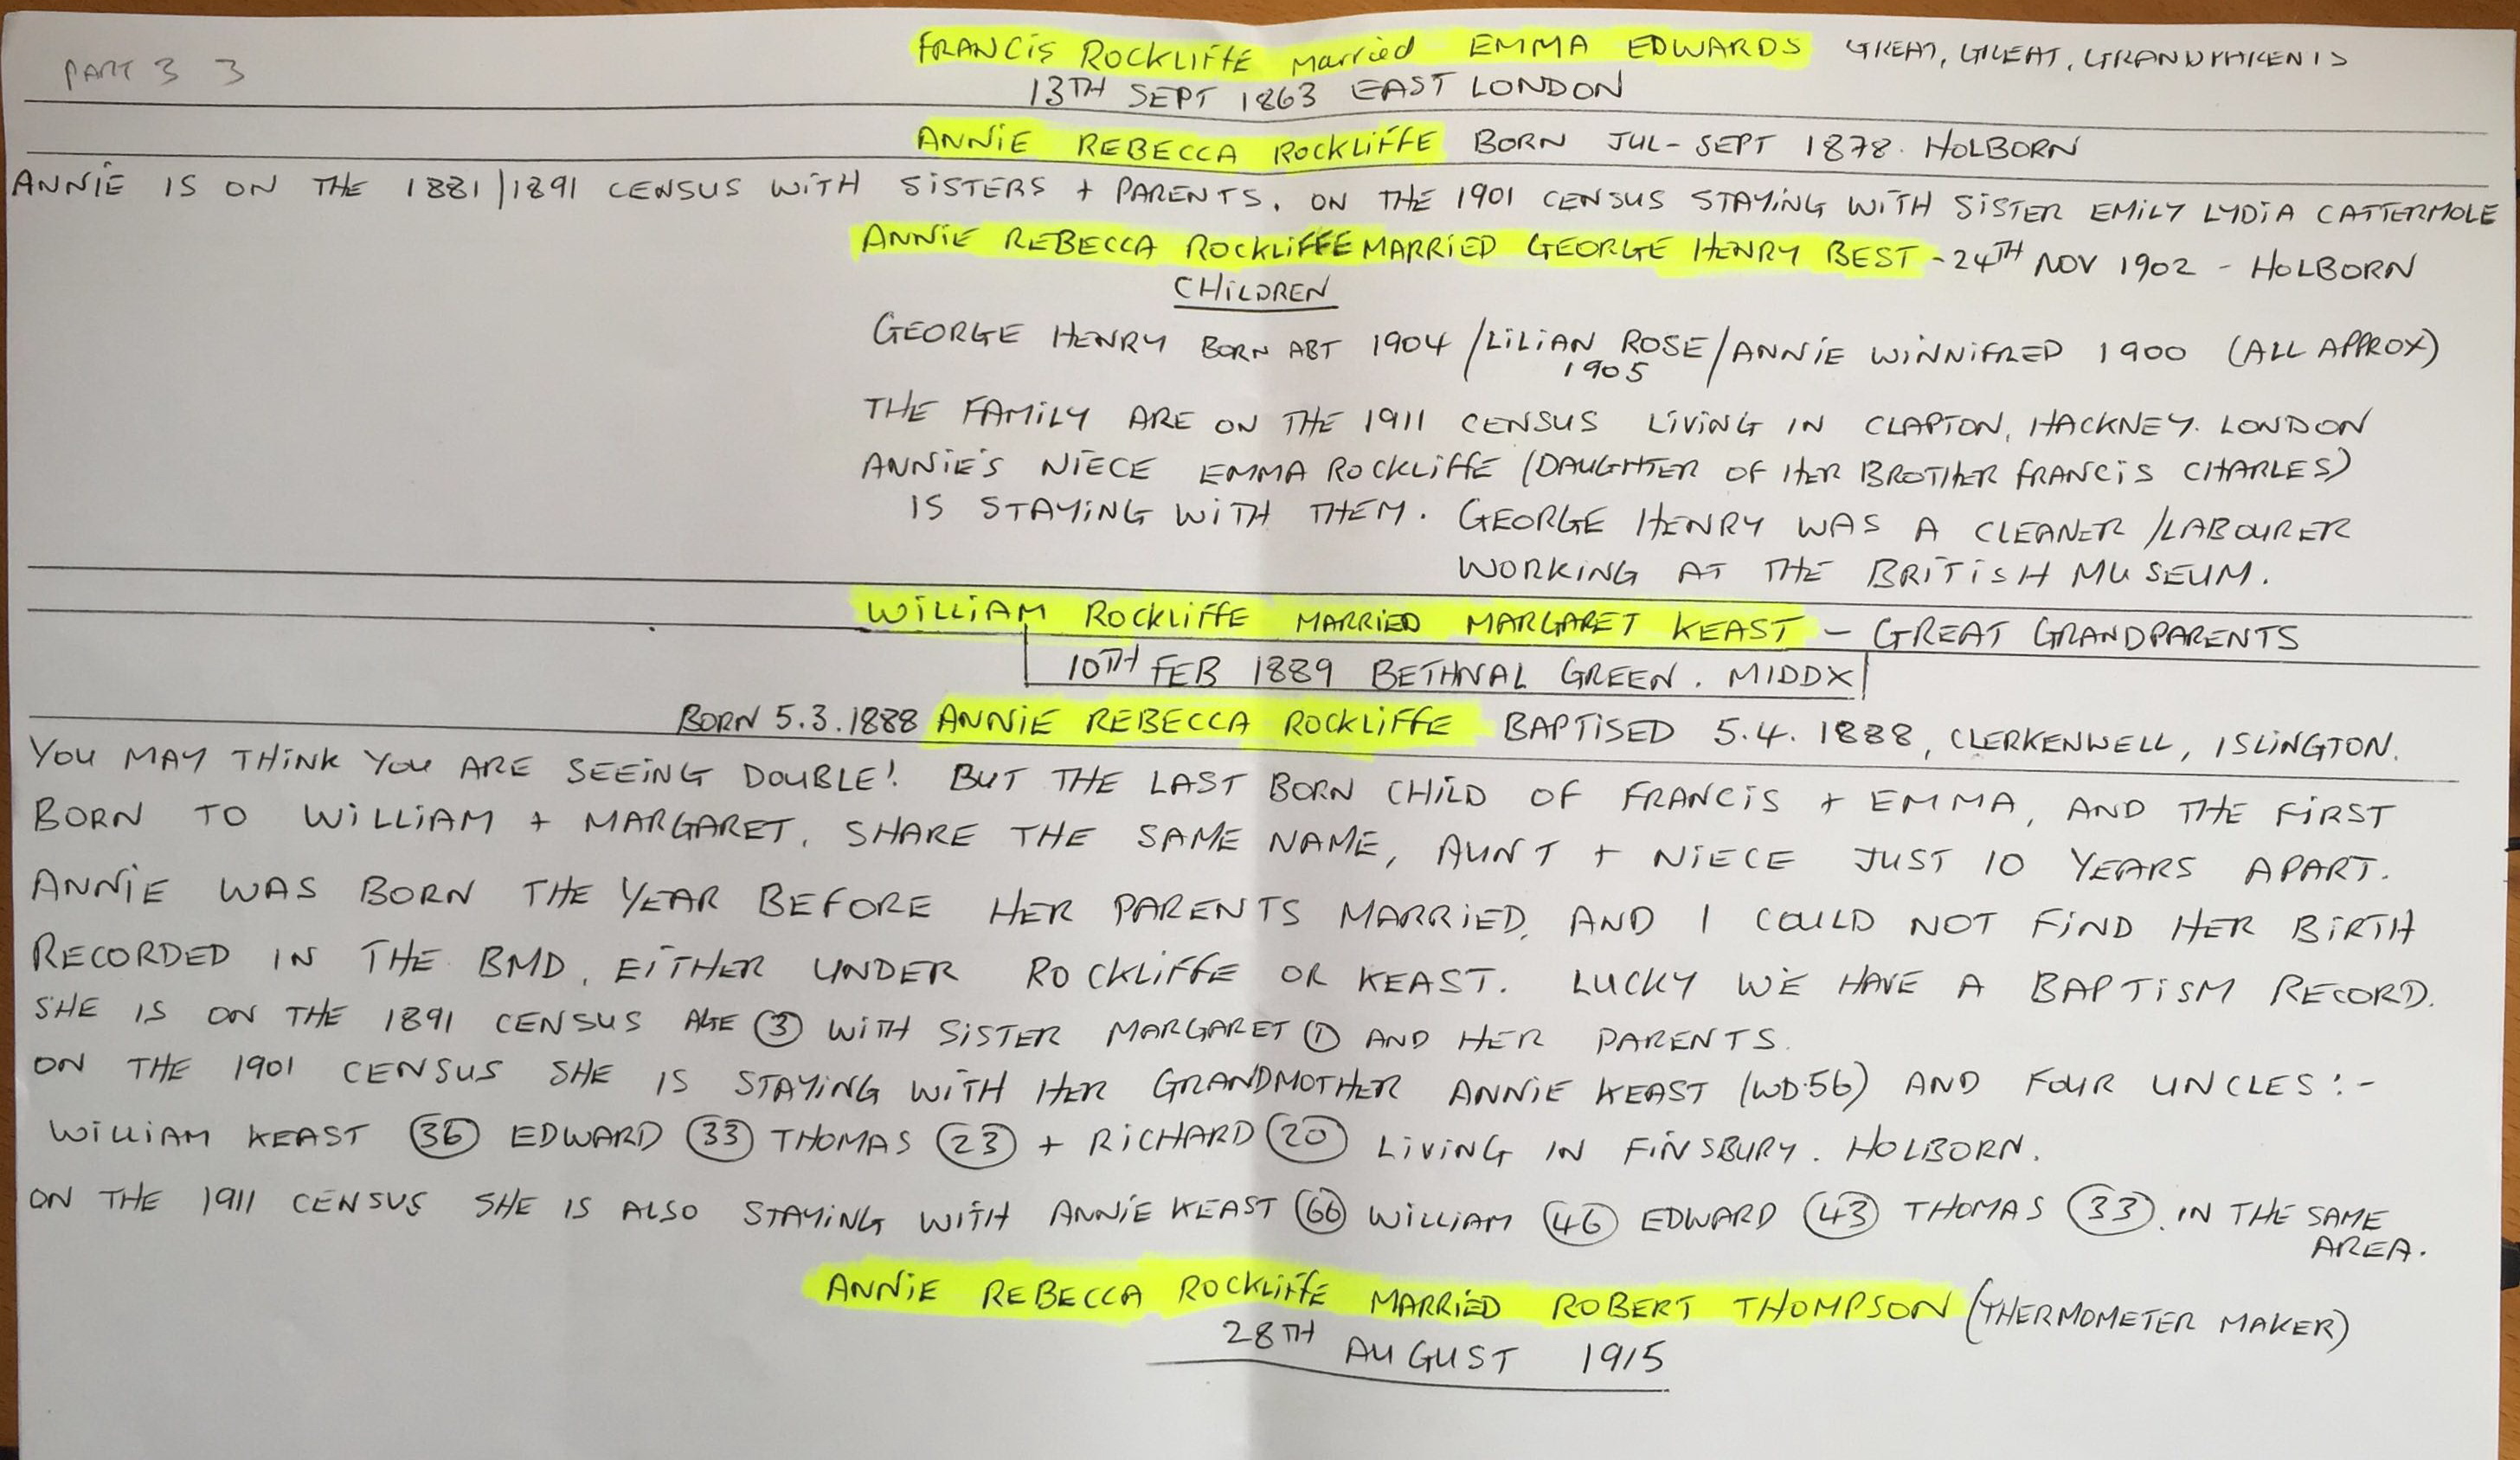 PART 3 3
FRANCIS ROCKLIFFE married EMMA EDWARDS GREAT, GREAT, GRANDPARENTS
13TH SEPT 1863 EAST LONDON
ANNIE REBECCA ROCKLIFFE BORN JUL-SEPT 1878. HOLBORN
ANNIE IS ON THE 1881/1891 CENSUS WITH SISTERS + PARENTS. ON THE 1901 CENSUS STAYING WITH SISTER EMILY LYDIA CATTERMOLE
ANNIE REBECCA ROCKLIFFE MARRIED GEORGE HENRY BEST - 24TH NOV 1902 - HOLBORN
CHILDREN
GEORGE HENRY BORN ABT 1904 / LILIAN ROSE / ANNIE WINNIFRED 1900 (ALL APPROX)
1905
THE FAMILY ARE ON THE 1911 CENSUS LIVING IN CLAPTON, HACKNEY. LONDON
ANNIE'S NIECE EMMA ROCKLIFFE (DAUGHTER OF HER BROTHER FRANCIS CHARLES)
IS STAYING WITH THEM. GEORGE HENRY WAS A CLEANER / LABOURER
WORKING AT THE BRITISH MUSEUM.
WILLIAM ROCKLIFFE MARRIED MARGARET KEAST - GREAT GRANDPARENTS
10TH FEB 1889 BETHNAL GREEN. MIDDX
BORN 5.3.1888 ANNIE REBECCA ROCKLIFFE BAPTISED 5.4.1888, CLERKENWELL, ISLINGTON.
YOU MAY THINK YOU ARE SEEING DOUBLE! BUT THE LAST BORN CHILD OF FRANCIS + EMMA, AND THE FIRST
BORN TO WILLIAM + MARGARET, SHARE THE SAME NAME, AUNT + NIECE JUST 10 YEARS APART.
ANNIE WAS BORN THE YEAR BEFORE HER PARENTS MARRIED, AND I COULD NOT FIND HER BIRTH
RECORDED IN THE BMD, EITHER UNDER ROCKLIFFE OR KEAST. LUCKY WE HAVE A BAPTISM RECORD.
SHE IS ON THE 1891 CENSUS AGE (3) WITH SISTER MARGARET (1) AND HER PARENTS.
ON THE 1901 CENSUS SHE IS STAYING WITH HER GRANDMOTHER ANNIE KEAST (WD.56) AND FOUR UNCLES:-
WILLIAM KEAST (36) EDWARD (33) THOMAS (23) + RICHARD (20) LIVING IN FINSBURY. HOLBORN.
ON THE 1911 CENSUS SHE IS ALSO STAYING WITH ANNIE KEAST (66) WILLIAM (46) EDWARD (43) THOMAS (33). IN THE SAME
AREA.
ANNIE REBECCA ROCKLIFFE MARRIED ROBERT THOMPSON (THERMOMETER MAKER)
28TH AUGUST 1915